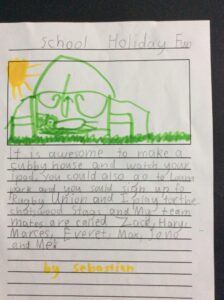 School Holiday Fun
It is awesome to make a
cubby house and watch your
Ipad. You could also go to Luna
park and you could sign up to
Rugby Union and I play for the
Stags and My team
mates are called Zack, Harv,
Marces, Everet, Max,
and Me.
by Sebastian